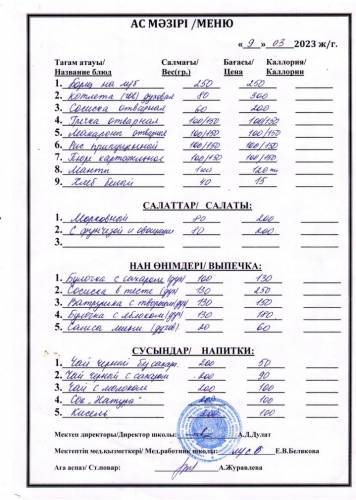 АС МӘЗІРІ /МЕНЮ
« 9 » 03 2023 ж/г.
Тағам атауы/ Салмағы/ Бағасы/ Каллория/
Название блюд Вес(гр.) Цена Каллории
1. Борщ на м/б 250 250
2. Котлета духовая 80 300
3. Сосиска отварная 60 200
4. Гречка отварная 100/150 100/150
5. Макароны отварные 100/150 100/150
6. Рис припущенный 100/150 100/150
7. Пюре картофельное 100/150 100/150
8. Манты 120
9. Хлеб белый 40 15
САЛАТТАР/ САЛАТЫ:
1. Морковный 80 200
2. С фунчозой и овощами 80 200
3.
НАН ӨНІМДЕРІ/ ВЫПЕЧКА:
1. Булочка с сахаром (дух) 100 130
2. Сосиска в тесте (дух) 130 250
3. Ватрушка с творогом (дух) 130 150
4. Булочка с яблоком (дух) 130 180
5. мини (духов) 20 60
СУСЫНДАР/ НАПИТКИ:
1. Чай черный б/сахара 200 50
2. Чай черный с сахаром 200 90
3. Чай с молоком 200 100
4. Сок „Натура“ 200 100
5. Кисель 200 100
Мектеп директоры/Директор школы: А.Д.Дулат
Мектептің мед.қызметкері/ Мед.работник школы: Е.В.Белякова
Аға аспаз/ Ст.повар: А.Журавлева